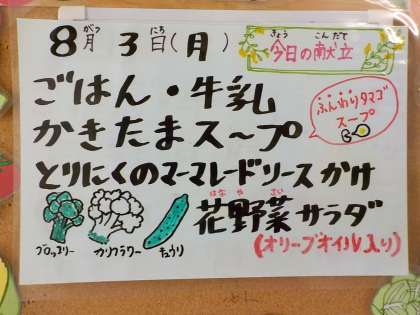 8月 3日(月)
がつ にち
きょう こんだて
今日の献立
ごはん・牛乳
かきたまス～プ
ふんわりタマゴ
スープ
とりにくのマーマレードソースかけ
はな や さい
花野菜サラダ
(オリーブオイル入り)
ブロッコリー カリフラワー きゅうり